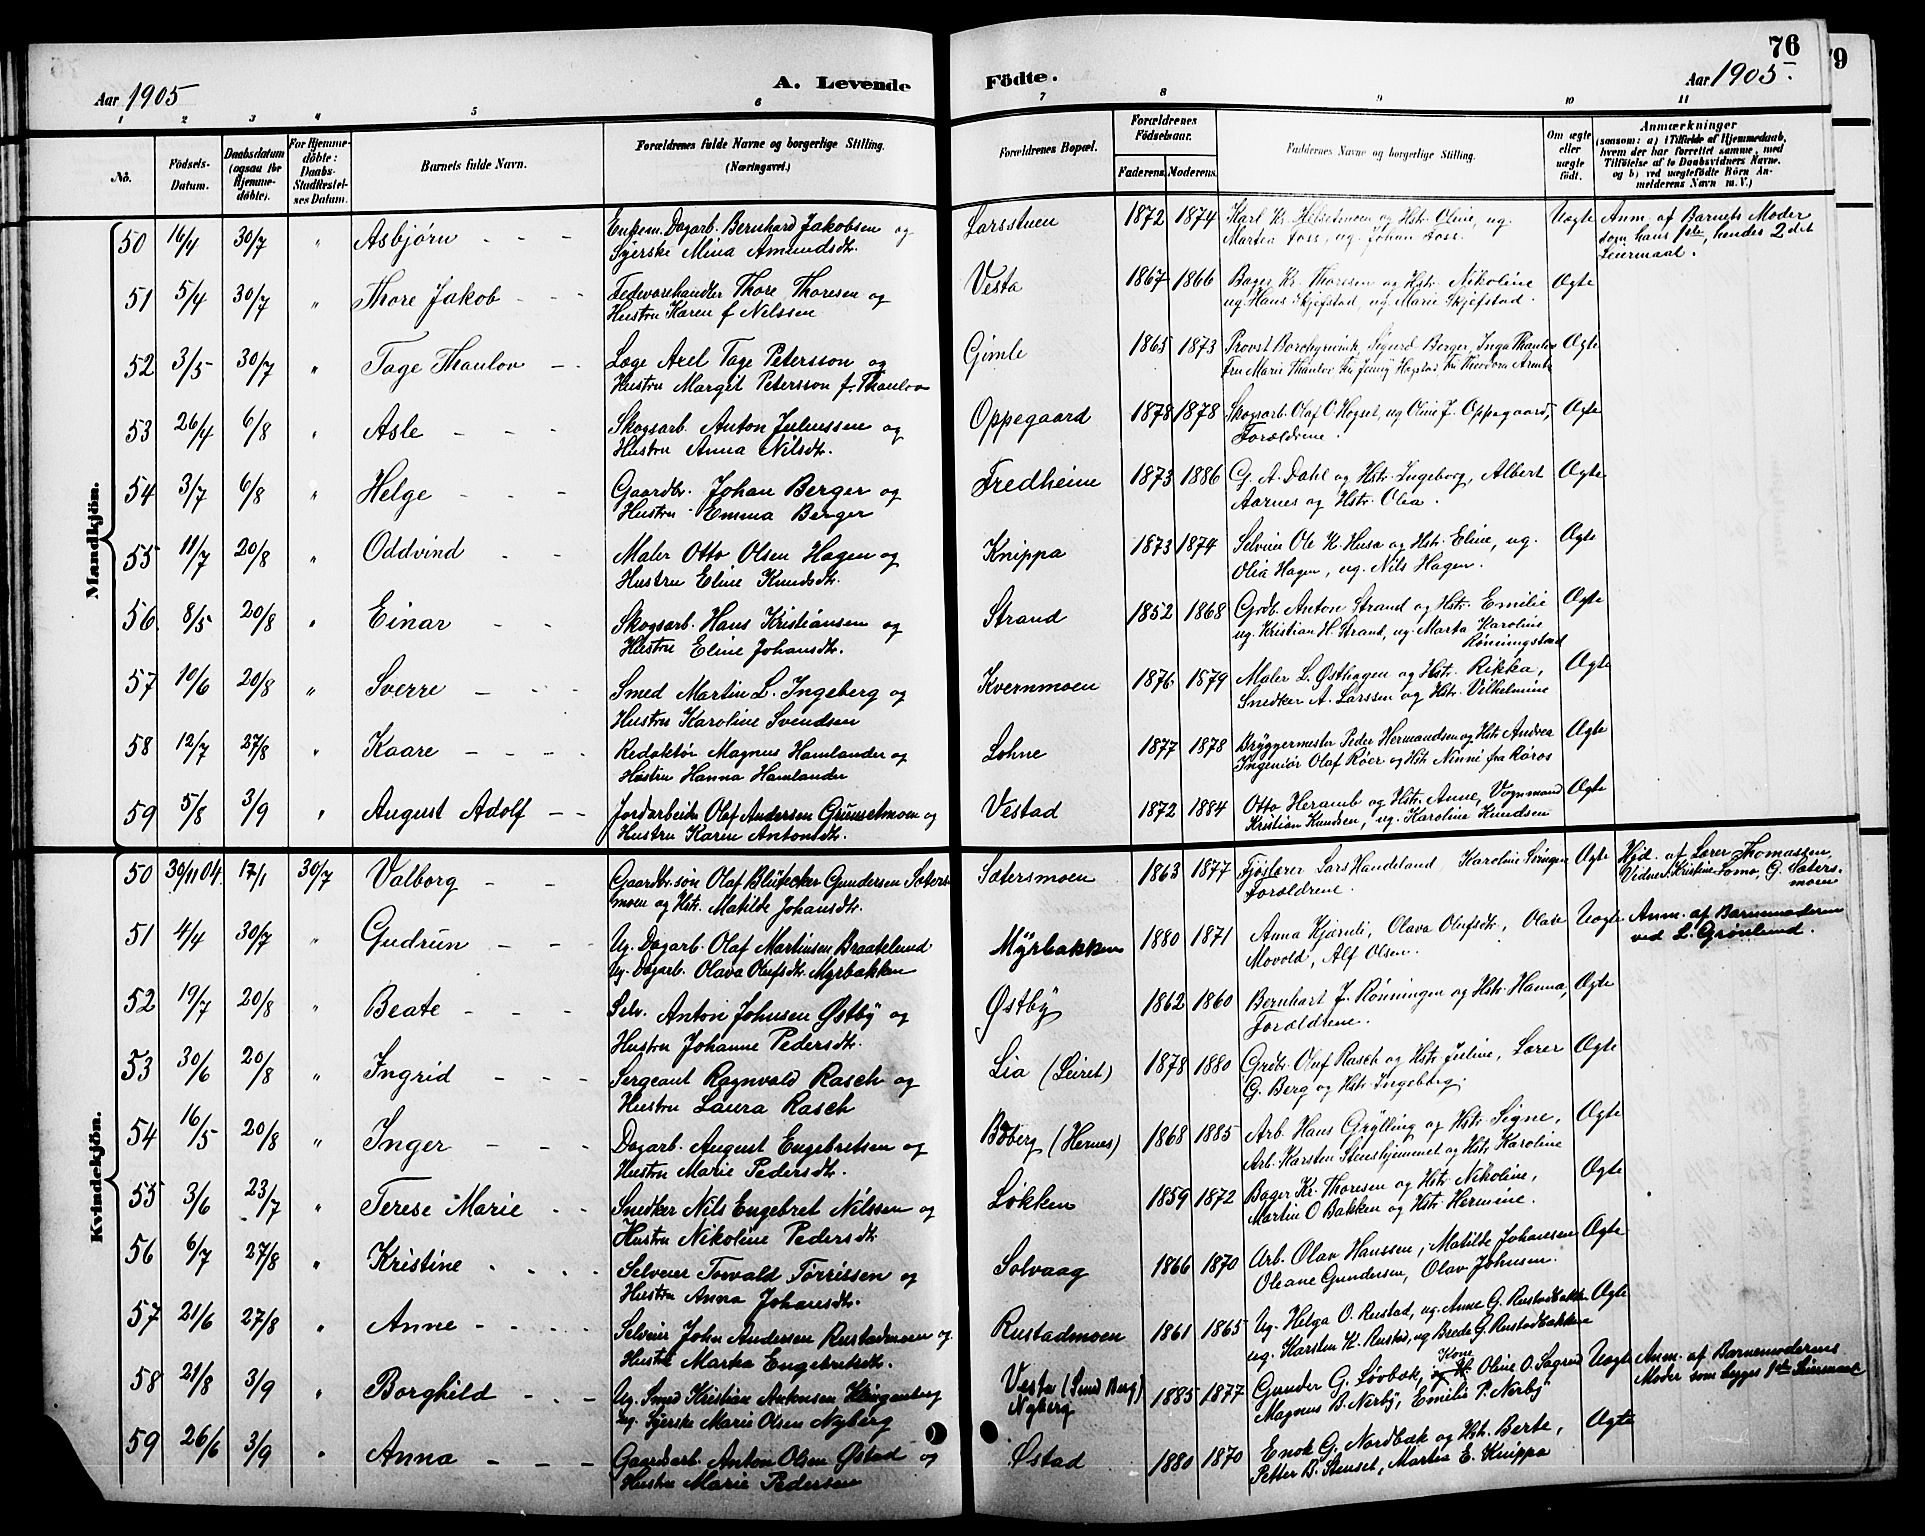 Aar 1905
A. Levende
Födte.
76
79
Aar 1905.
1 2 3 4 5 6 7 8 9 10 11
No.
Födsels-
Datum.
Daabsdatum
(ogsaa for
Hjemme-
döbte).
For Hjemme-
döbte:
Daabs-
Stadfæstel-
ses Datum.
Barnets fulde Navn.
Forældrenes fulde Navne og borgerlige Stilling.
(Næringsvei.)
Forældrenes Bopæl.
Forældrenes
Födselsaar.
Faderens. Moderens.
Faddernes Navne og borgerlige Stilling.
Om ægte
eller
uægte
födt.
Anmærkninger
(saasom: a) i Tilfælde af Hjemmedaab,
hvem der har forrettet samme, med
Tilföielse af to Daabsvidners Navne.
og b) ved uægtefödte Börn An-
melderens Navn m.V.)
Mandkjön.
50 16/4 30/7 " Asbjørn - - - Enkem. Dagarb. Bernhard Jakobsen og
Syerske Mina Amundsdtr.
Larsstuen 1872 1874 Karl Kr. Helsetmoen og Hstr. Oline, ug.
Martea Foss, ug. Johan Foss.
Uægte Anm. af Barnets Moder
som hans 1ste, hendes 2det
Leiermaal.
51 5/4 30/7 " Thore Jakob - - - Fedevarehandler Thore Thoresen og
Hustru Karen f Nilssen
Vesta 1867 1866 Bager Kr. Thoresen og Hstr. Nikoline
ug. Hans Skjefstad, ug. Marie Skjefstad.
Ægte
52 3/5 30/7 " Tage Thaulov - - Læge Axel Tage Petersson og
Hustru Margit Petersson f. Thaulov
Gimle 1865 1873 Provst Borchgrevink Sigurd Berger, Inga Thaulov
Fru Marie Thaulov Fr. Jenny Hogstad, Fr. Theodora
Ægte
53 26/4 6/8 " Asle - - - Skogsarb. Anton Juliussen og
Hustru Anna Nilsdtr.
Oppegaard 1878 1878 Skogsarb. Olaf O. Hogset, ug Oline J. Oppegaard,
Forældrene.
Ægte
54 3/7 6/8 " Helge - - - Gaardbr. Johan Berger og
Hustru Emma Berger
Fredheim 1873 1886 G. A. Dahl og Hstr. Ingeborg, Albert
Aarnes og Hstr. Olea.
Ægte
55 11/7 20/8 " Oddvind - - Maler Otto Olsen Hagen og
Hustru Eline Knudsdtr.
Knippa 1873 1874 Selveier Ole K. Husa og Hstr. Eline, ug.
Olia Hagen, ug. Nils Hagen.
Ægte
56. 8/5 20/8 " Einar - - Skogsarb. Hans Kristiansen og
Hustru Eline Johansdtr.
Strand 1852 1868 Grdb. Anton Strand og Hstr. Emilie
ug. Kristian H. Strand, ug. Marta Karoline
Rönningstad
Ægte
57 10/6 20/8 " Sverre - - - Smed Martin L. Ingeberg og
Hustru Karoline Svendsen
Kvernmoen 1876 1879 Maler L. Østhagen og Hstr. Rikka,
Snedker A. Larssen og Hstr. Vilhelmine
Ægte
58 12/7 27/8 " Kaare - - - - Redaktör Magnus Hamlander og
Hustru Hanna Hamlander
Lohne 1877 1878 Bryggermester Peder Hermandsen og Hstr Andrea
Ingeniör Olaf Röer og Hstr. Ninni fra Röros
Ægte
59 5/8 3/9 " August Adolf - - Jordarbeider Olaf Andersen Grundsetmoen og
Hustru Karen Antonsdtr.
Vestad 1872 1884 Otto Heramb og Hstr. Anne, Vognmand
Kristian Knudsen, ug. Karoline Knudsen
Ægte
Kvindekjön.
50 30/11 04. 17/1 30/7 Valborg - - Gaardbr.sön Olaf Gundersen Sæters-
moen og Hstr. Matilde Johansdtr.
Sætersmoen 1863 1877 Fjøslærer Lars Handeland Karoline
Forældrene.
Ægte Hjd. af Lærer Thomassen,
Vidner: Kristine Lomo, G. Sæters-
moen
51 4/4 30/7 " Gudrun - - - Ug. Dagarb. Olaf Martinsen Braatelund
Ug. Dagarb. Olava Olufsdtr. Myrbakken
Myrbakken 1880 1871 Anna Kjærnli, Olava Olufsdtr., Olav
Movold, Alf Olsen.
Uægte Anm. af Barnemoderen
ved L. Grönlund.
52 19/7 20/8 " Beate - - - Selv. Anton Johnsen Østby og
Hustru Johanne Pedersdtr.
Østby 1862 1860 Bernhart J. Rönningen og Hstr. Hanna,
Forældrene.
Ægte
53 30/6 20/8 " Ingrid - - - Sergeant Ragnvald Rasch og
Hustru Laura Rasch
Lia (Leiret) 1878 1880 Grdbr. Oluf Rasch og Hstr Juline, Lærer
G. Berg og Hstr. Ingeborg.
Ægte
54 16/5 20/8 " Inger - - - Dagarb. August Engebretsen og
Hustru Marie Pedersdtr.
Boberg (Hernes) 1868 1885 Arb. Hans Grylling og Hstr. Signe,
Arb. Karsten Stenshjemmet og Hstr. Karoline
Ægte
55 3/6 23/7 " Terese Marie - - Snedker Nils Engebret Nilssen og
Hustru Nikoline Pedersdtr.
Løkken 1859 1872 Bager Kr. Thoresen og Hstr Nikoline,
Martin O Bakken og Hstr. Hermine.
Ægte
56 6/7 27/8 " Kristine - - - - Selveier Torvald Törrissen og
Hustru Anna Johansdtr.
Solvaag 1866 1870 Arb. Olav Hanssen, Matilde Johansen
Oleane Gundersen, Olav Johnsen.
Ægte
57 21/6 27/8 " Anne - - - - Selveier John Andersen Rustadmoen og
Hustru Martea Engebretsdtr.
Rustadmoen 1861 1865 Ug. Helga O. Rustad, ug. Anne G. Rustadbakken
ug. Karsten K. Rustad, ug Brede G. Rustadbakken
Ægte
58 21/8 3/9 " Borghild - - - Ug. Smed Kristian Antonsen Klingenberg
ug. Syerske Marie Olsen Nyberg
Vesta (Smed Berg)
Nyberg
1885 1877 Gunder G. Lövbæk, Kone Oline O. Sagen
Magnus B. Nerby, Emilie P. Nerby
Uægte Anm. af Barnemoderens
Moder som begges 1ste Leiermaal
59 26/6 3/9 " Anna - - - Gaardarb. Anton Olsen Østad og
Hustru Marie Pedersen
Østad 1880 1870 Enok G. Nordbæk og Hstr. Berte,
Petter B. Stenset, Martea E. Knippa
Ægte